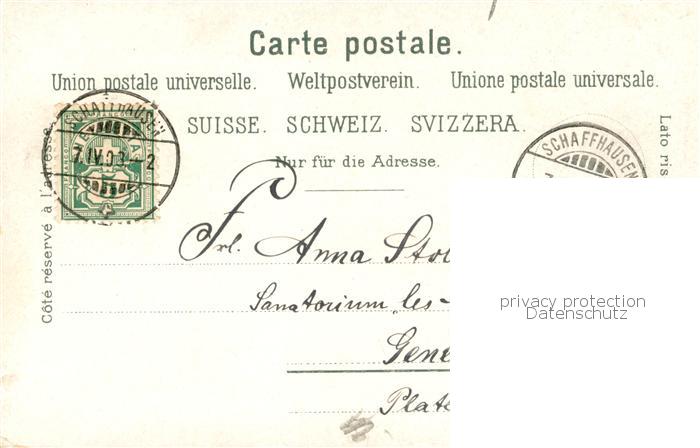 Carte postale.
Union postale universelle. Weltpostverein. Unione postale universale.
SUISSE. SCHWEIZ. SVIZZERA.
Nur für die Adresse.
Côté réservé à l'adresse.
Lato ris
SCHAFFHAUSEN
7.IV.03 – 2
SCHAFFHAUSEN
7.
Frl. Anna Sto
Sanatorium les-
Gene
Plate
privacy protection
Datenschutz